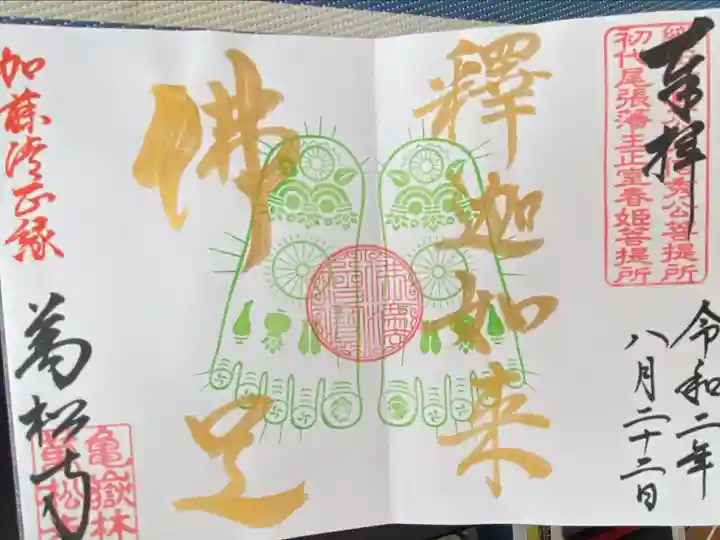 奉拝
初代尾張藩主正室春姫菩提所
令和二年
八月二十二日
釋迦如来
佛足
加藤清正縁
萬松寺
亀嶽林
萬松寺